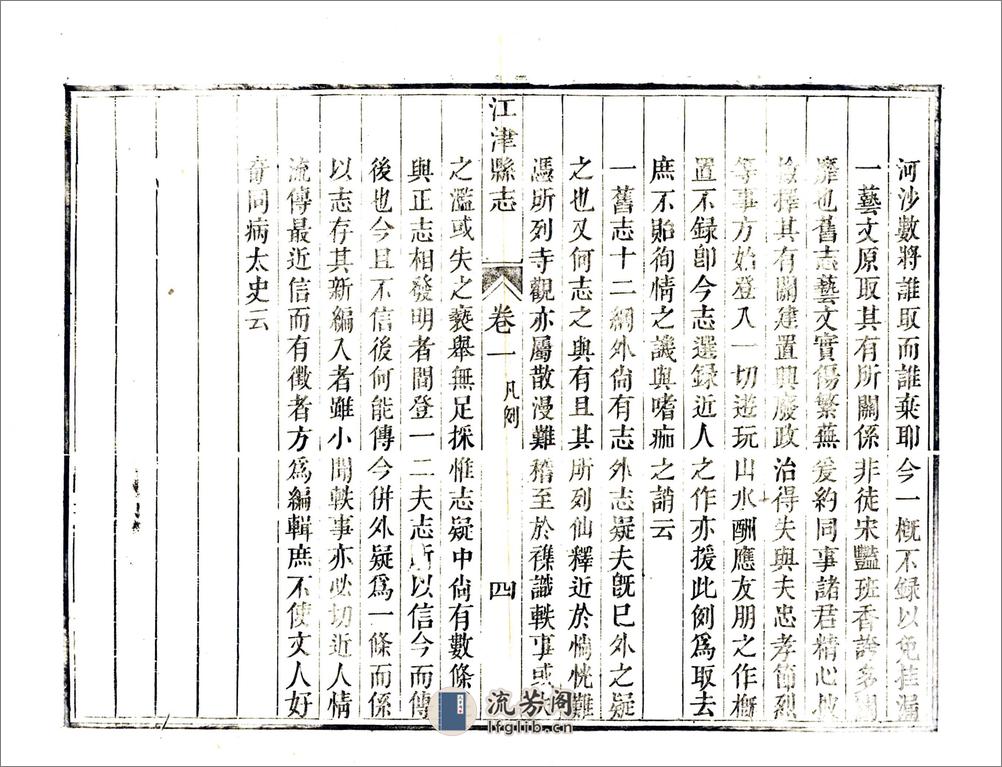 河沙數將誰取而誰棄耶今一概不錄以免挂漏
一藝文原取其有所關係非徒宋豔班香誇多鬭
靡也舊志藝文實傷繁蕪爰約同事諸君精心披
揀擇其有關建置興廢政治得失與夫忠孝節烈
等事方始登入一切遊玩山水酬應友朋之作概
置不錄卽今志選錄近人之作亦援此例爲取去
庶不貽徇情之譏與嗜痂之誚云
一舊志十二綱外尙有志外志疑夫旣已外之疑
之也又何志之與有且其所列仙釋近於惝恍難
憑所列寺觀亦屬散漫難稽至於襍識軼事或
之濫或失之褻舉無足採惟志疑中尙有數條
與正志相發明者間登一二夫志所以信今而傳
後也今且不信後何能傳今併外疑爲一條而係
以志存其新編入者雖小聞軼事亦必切近人情
流傳最近信而有徵者方爲編輯庶不使文人好
奇同病太史云
江津縣志
卷一
凡例
四
流芳阁
lfglib.cn